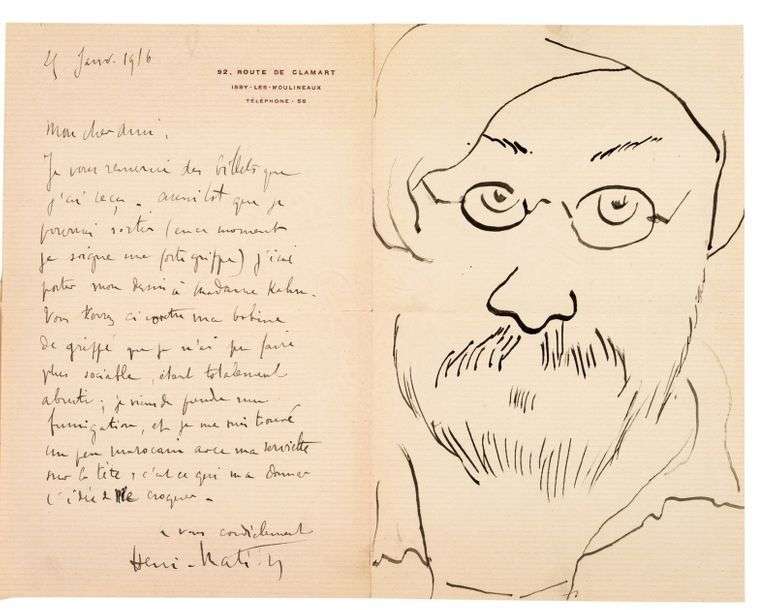 25 Janv. 1916
92, ROUTE DE CLAMART
ISSY-LES-MOULINEAUX
TÉLÉPHONE · 56
Mon cher ami,
Je vous remercie des billets que
j'ai reçu. aussitôt que je
pourrai sortir (en ce moment
je soigne une forte grippe) j'irai
porter mon dessin à Madame Kahn.
Vous verrez ci contre ma bobine
de grippé que je n'ai pu faire
plus sociable, étant totalement
abruti; je viens de prendre une
fumigation, et je me suis trouvé
un peu marocain avec ma serviette
sur la tête; c'est ce qui m'a donner
l'idée de me croquer.
a vous cordialement
Henri-Matisse